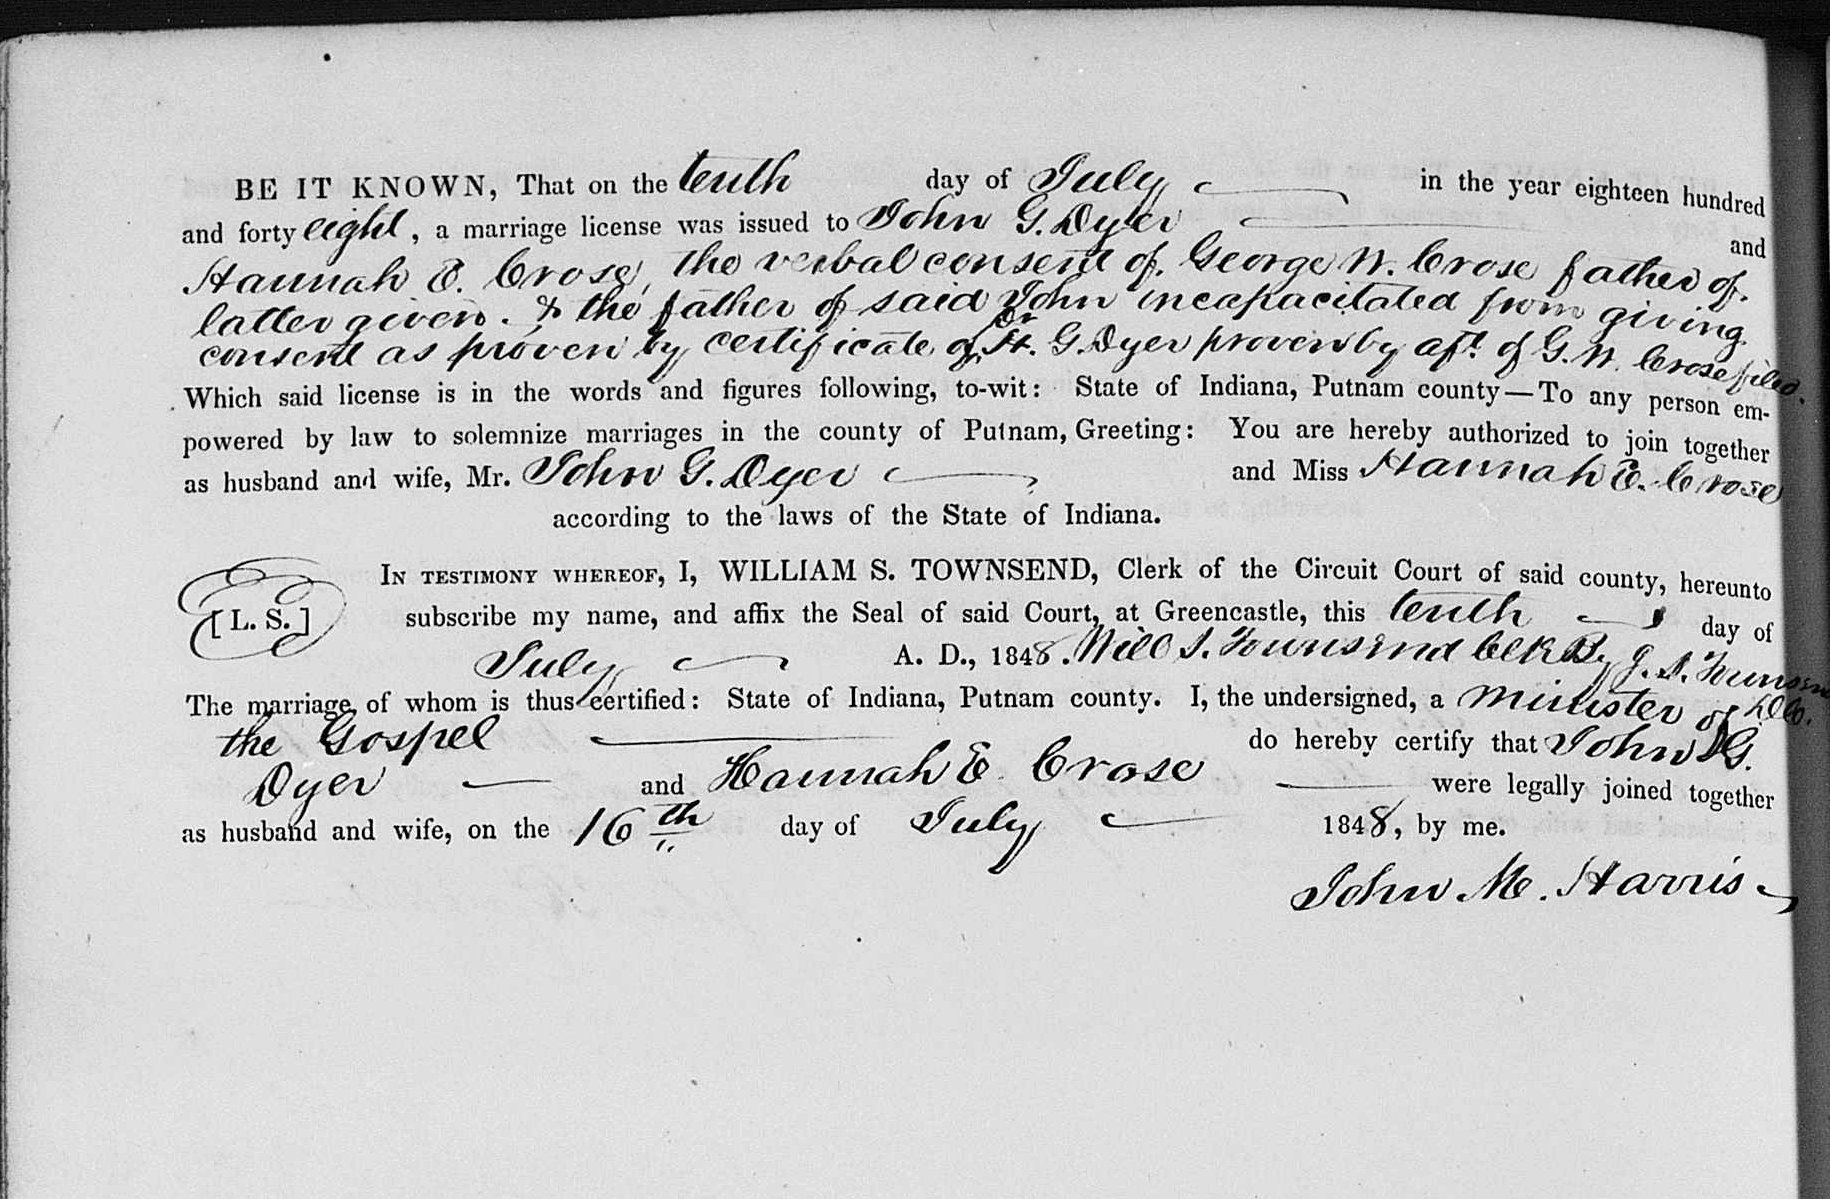 BE IT KNOWN, That on the tenth day of July in the year eighteen hundred
and forty eight, a marriage license was issued to John G. Dyer and
Hannah E. Crose, the verbal consent of George W. Crose father of
latter given. & the father of said John incapacitated from giving
consent as proven by certificate of Dr. H. G. Dyer proven by afft. of G. W. Crose filed.
Which said license is in the words and figures following, to-wit: State of Indiana, Putnam county—To any person em-
powered by law to solemnize marriages in the county of Putnam, Greeting: You are hereby authorized to join together
as husband and wife, Mr. John G. Dyer and Miss Hannah E. Crose
according to the laws of the State of Indiana.
IN TESTIMONY WHEREOF, I, WILLIAM S. TOWNSEND, Clerk of the Circuit Court of said county, hereunto
[L. S.] subscribe my name, and affix the Seal of said Court, at Greencastle, this tenth day of
July A. D., 1848. Will S. Townsend Clk By J. S.
The marriage of whom is thus certified: State of Indiana, Putnam county. I, the undersigned, a minister of
the Gospel do hereby certify that John G.
Dyer and Hannah E. Crose were legally joined together
as husband and wife, on the 16th day of July 1848, by me.
John M. Harris